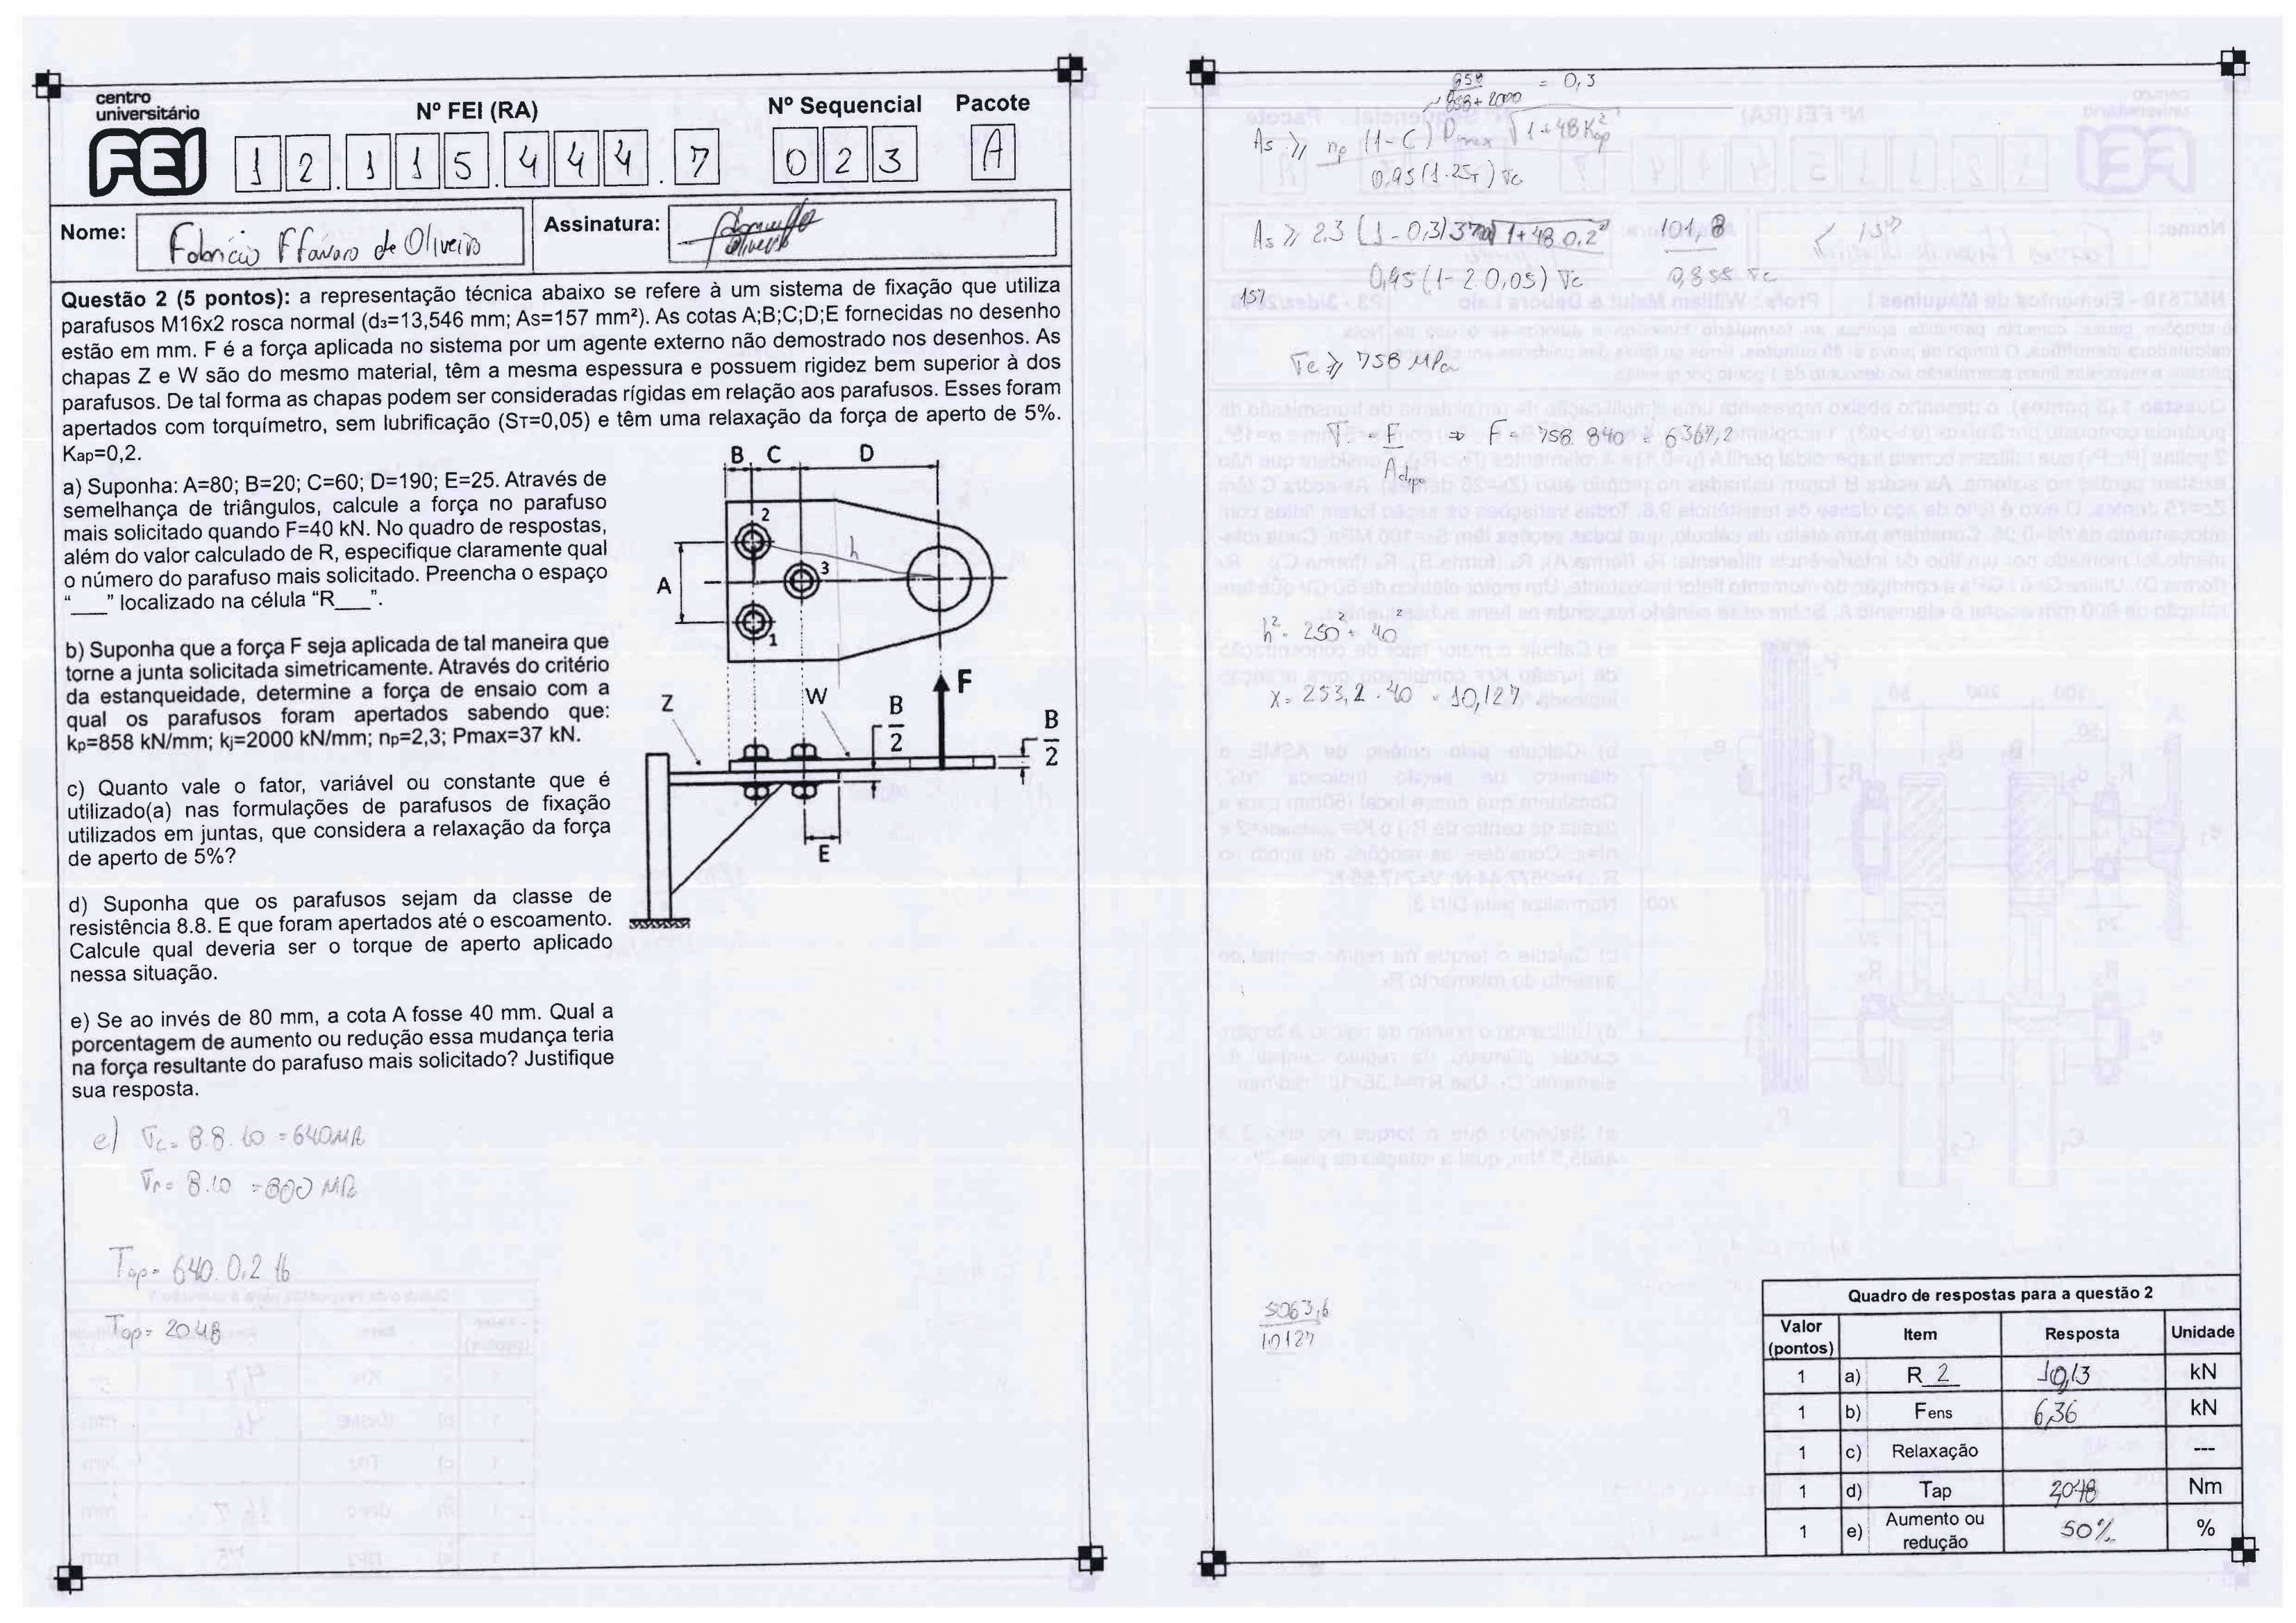 centro
universitário
FEI
Nº FEI (RA)
Nº Sequencial
Pacote
12.115.444.7
023
A
Nome:
Fabrício Ffávaro de Oliveira
Assinatura:
Questão 2 (5 pontos): a representação técnica abaixo se refere à um sistema de fixação que utiliza
parafusos M16x2 rosca normal (d₃=13,546 mm; As=157 mm²). As cotas A;B;C;D;E fornecidas no desenho
estão em mm. F é a força aplicada no sistema por um agente externo não demostrado nos desenhos. As
chapas Z e W são do mesmo material, têm a mesma espessura e possuem rigidez bem superior à dos
parafusos. De tal forma as chapas podem ser consideradas rígidas em relação aos parafusos. Esses foram
apertados com torquímetro, sem lubrificação (Sᴛ=0,05) e têm uma relaxação da força de aperto de 5%.
Kap=0,2.
a) Suponha: A=80; B=20; C=60; D=190; E=25. Através de
semelhança de triângulos, calcule a força no parafuso
mais solicitado quando F=40 kN. No quadro de respostas,
além do valor calculado de R, especifique claramente qual
o número do parafuso mais solicitado. Preencha o espaço
"___" localizado na célula "R___".
b) Suponha que a força F seja aplicada de tal maneira que
torne a junta solicitada simetricamente. Através do critério
da estanqueidade, determine a força de ensaio com a
qual os parafusos foram apertados sabendo que:
kp=858 kN/mm; kj=2000 kN/mm; np=2,3; Pmax=37 kN.
c) Quanto vale o fator, variável ou constante que é
utilizado(a) nas formulações de parafusos de fixação
utilizados em juntas, que considera a relaxação da força
de aperto de 5%?
d) Suponha que os parafusos sejam da classe de
resistência 8.8. E que foram apertados até o escoamento.
Calcule qual deveria ser o torque de aperto aplicado
nessa situação.
e) Se ao invés de 80 mm, a cota A fosse 40 mm. Qual a
porcentagem de aumento ou redução essa mudança teria
na força resultante do parafuso mais solicitado? Justifique
sua resposta.
B C D
2
h
3
A
1
Z
W
B/2
F
B/2
E
e) σc= 8.8.10 =640MPa
σr= 8.10 =800 MPa
Tap= 640. 0,2 16
Tap= 2048
858/858+2000 = 0,3
As ≥ np (1-C) Pmax √1+48Kap²
0,95(1-2Sт) σc
As ≥ 2,3 (1-0,3)37 √1+48 0,2²
0,95(1-2 0,05) σc
101,8
0,855 σc
< 157
157
σe ≥ 758 MPa
σ = F ⇒ F= 758. 840 = 6367,2
h²= 250²+ 40²
x= 253,2 . 40 = 10,127
5063,6
10127
Quadro de respostas para a questão 2
Valor (pontos) Item Resposta Unidade
1 a) R 2 10,13 kN
1 b) Fens 6,36 kN
1 c) Relaxação ---
1 d) Tap 2048 Nm
1 e) Aumento ou redução 50% %